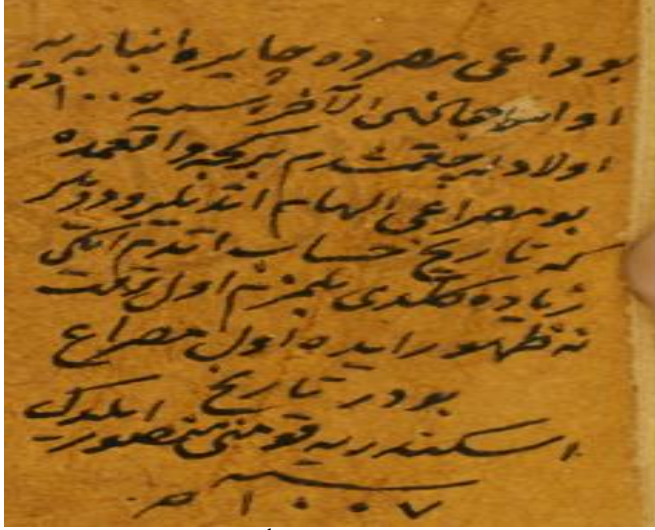 بو داعی مصرده چایره انبابه یه
اواسط جمادی الآخر سنه ١٠٠٥ ده
اولاد ایله چقمشدم بر کیجه واقعمده
بو مصراعی الهام اتدیلر ودیدیلر
که تاریخ حساب اتدم ایکی
زیاده کلدی بلمزم اول وقت
نه ظهور ایده اول مصراع
بودر تاریخ
اسکندر یه قومنی منصور ایلدك
سنه
١٠٠٧